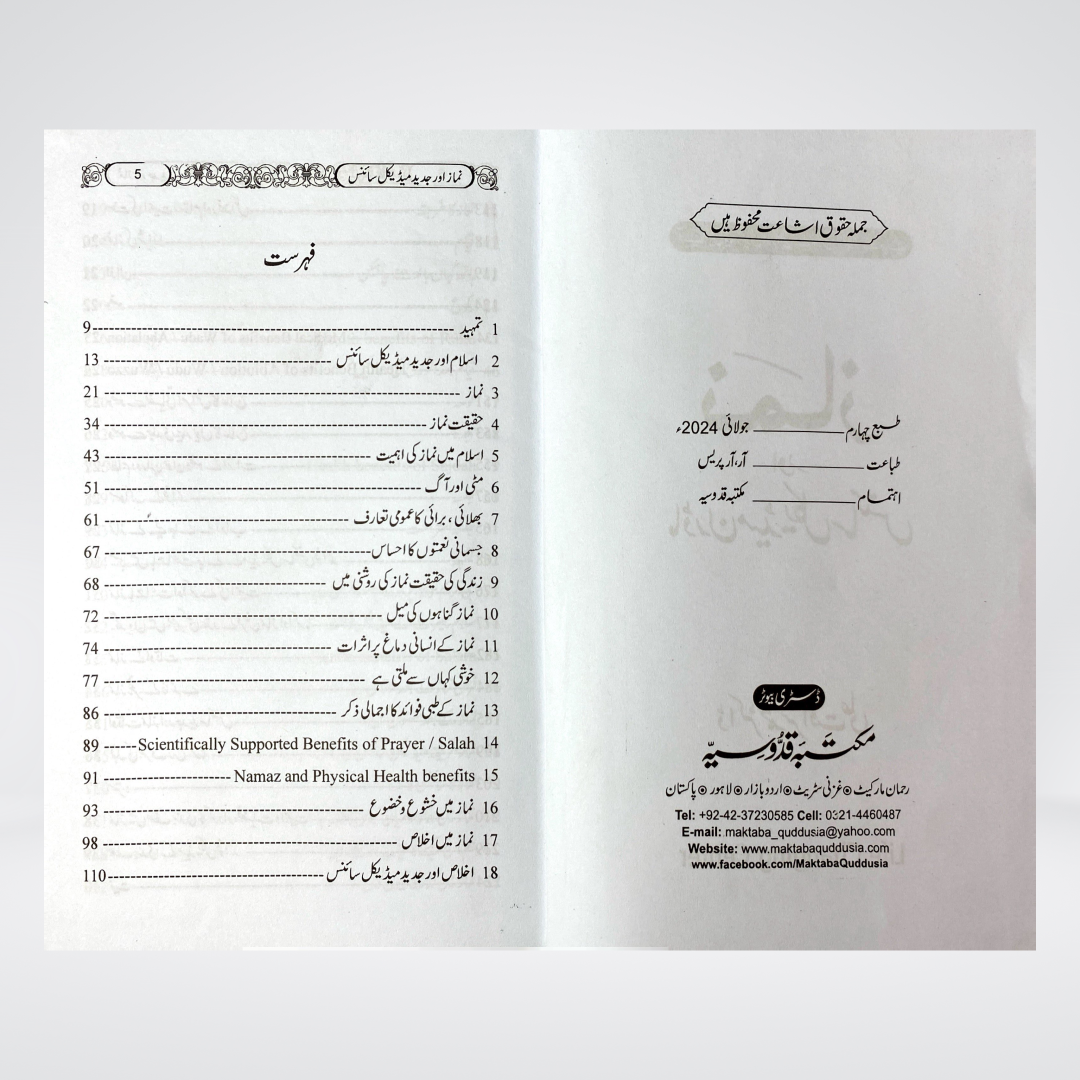 جملہ حقوق اشاعت محفوظ ہیں
طبع چہارم ــــــــــ جولائی 2024ء
طباعت ــــــــــ آر، آر پریس
اہتمام ــــــــــ مکتبہ قدوسیہ
ڈسٹری بیوٹر
مکتبہ قدّوسیہ
رحمان مارکیٹ ● غزنی سٹریٹ ● اردو بازار ● لاہور ● پاکستان
Tel: +92-42-37230585 Cell: 0321-4460487
E-mail: maktaba_quddusia@yahoo.com
Website: www.maktabaquddusia.com
www.facebook.com/MaktabaQuddusia
نماز اور جدید میڈیکل سائنس 5
فہرست
1 تمہید ---------- 9
2 اسلام اور جدید میڈیکل سائنس ---------- 13
3 نماز ---------- 21
4 حقیقت نماز ---------- 34
5 اسلام میں نماز کی اہمیت ---------- 43
6 مٹی اور آگ ---------- 51
7 بھلائی، برائی کا عمومی تعارف ---------- 61
8 جسمانی نعمتوں کا احساس ---------- 67
9 زندگی کی حقیقت نماز کی روشنی میں ---------- 68
10 نماز گناہوں کی میل ---------- 72
11 نماز کے انسانی دماغ پر اثرات ---------- 74
12 خوشی کہاں سے ملتی ہے ---------- 77
13 نماز کے طبی فوائد کا اجمالی ذکر ---------- 86
14 Scientifically Supported Benefits of Prayer / Salah ------ 89
15 Namaz and Physical Health benefits ---------- 91
16 نماز میں خشوع وخضوع ---------- 93
17 نماز میں اخلاص ---------- 98
18 اخلاص اور جدید میڈیکل سائنس ---------- 110